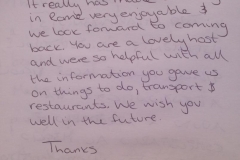 It really has made
in Rome very enjoyable &
we look forward to coming
back. You are a lovely host
and were so helpful with all
the information you gave us
on things to do, transport &
restaurants. We wish you
well in the future.
Thanks